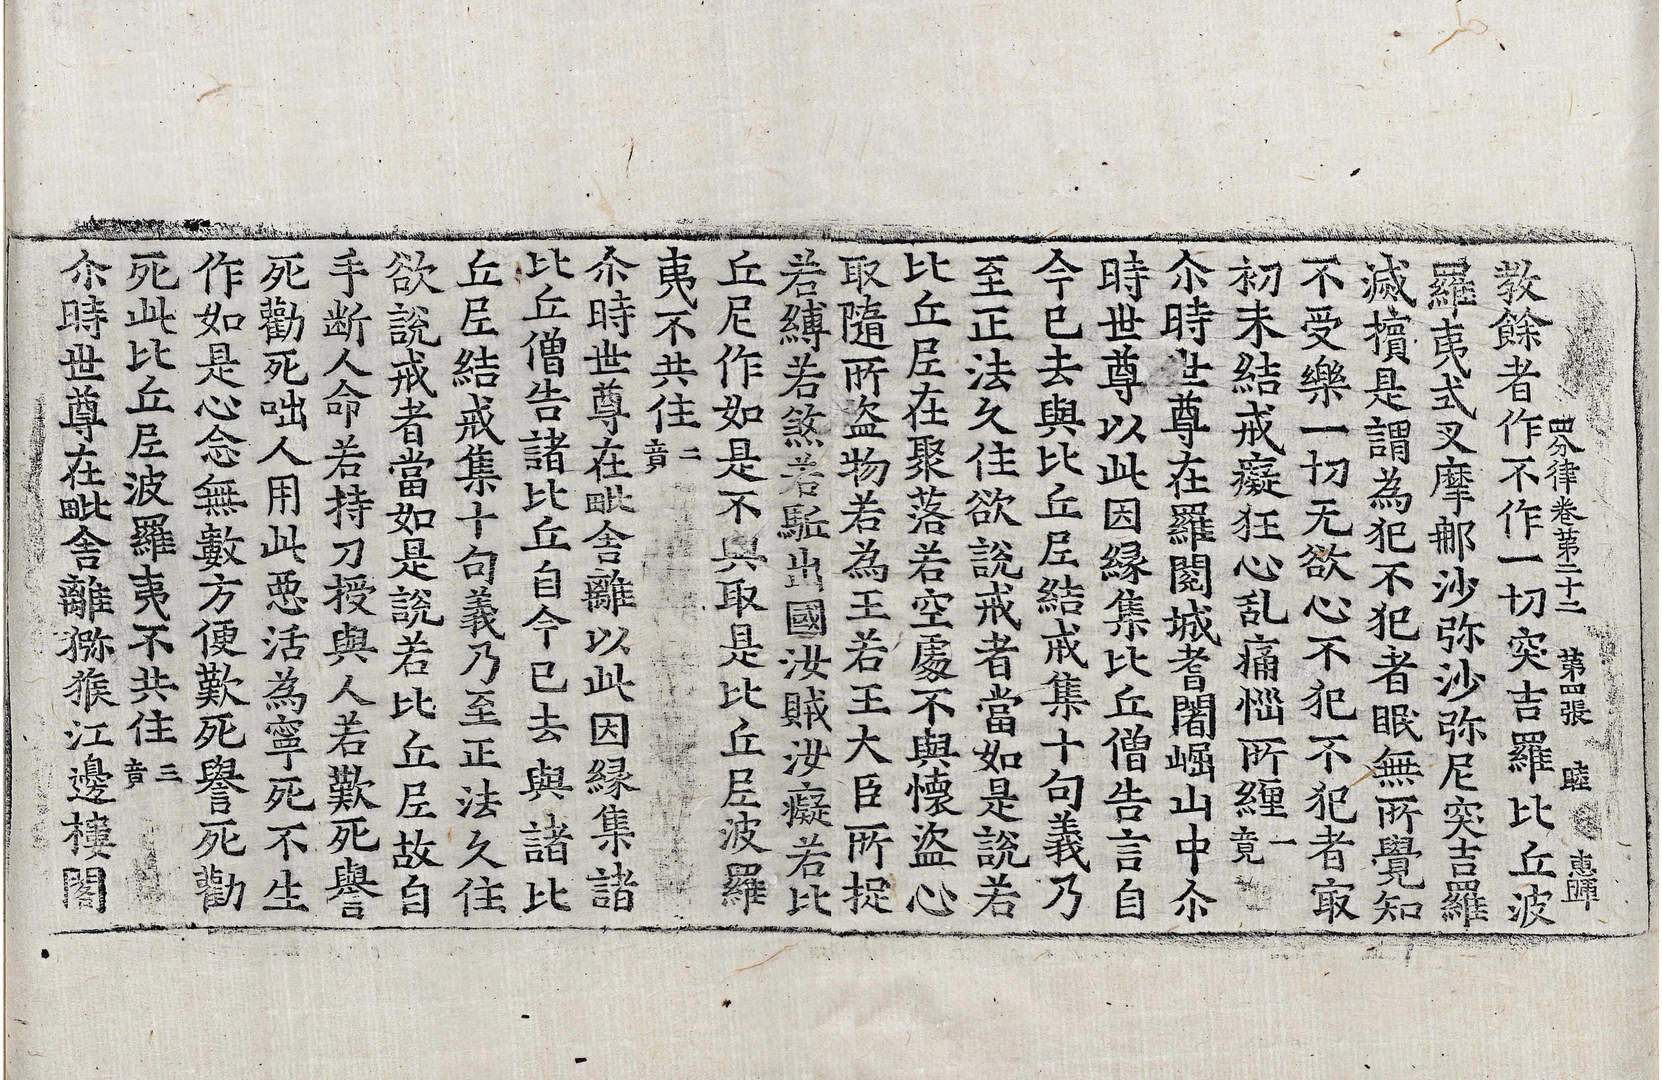 四分律卷第二十二 第四張 睦 惠師
教餘者作不作一切突吉羅比丘波
羅夷式叉摩那沙弥沙弥尼突吉羅
滅擯是謂為犯不犯者眠無所覺知
不受樂一切无欲心不犯不犯者冣
初未結戒癡狂心乱痛惱所纏一竟
尒時世尊在羅閱城耆闍崛山中尒
時世尊以此因緣集比丘僧告言自
今已去與比丘𡰱結戒集十句義乃
至正法久住欲說戒者當如是說若
比丘𡰱在聚落若空處不與懷盜心
取隨所盜物若為王若王大臣所捉
若縛若煞若駈出國汝賊汝癡若比
丘尼作如是不與取是比丘𡰱波羅
夷不共住二竟
尒時世尊在毗舍離以此因緣集諸
比丘僧告諸比丘自今已去與諸比
丘𡰱結戒集十句義乃至正法久住
欲說戒者當如是說若比丘𡰱故自
手断人命若持刀授與人若歎死譽
死勸死咄人用此惡活為寧死不生
作如是心念無數方便歎死譽死勸
死此比丘𡰱波羅夷不共住三竟
尒時世尊在毗舍離猕猴江邊樓閣